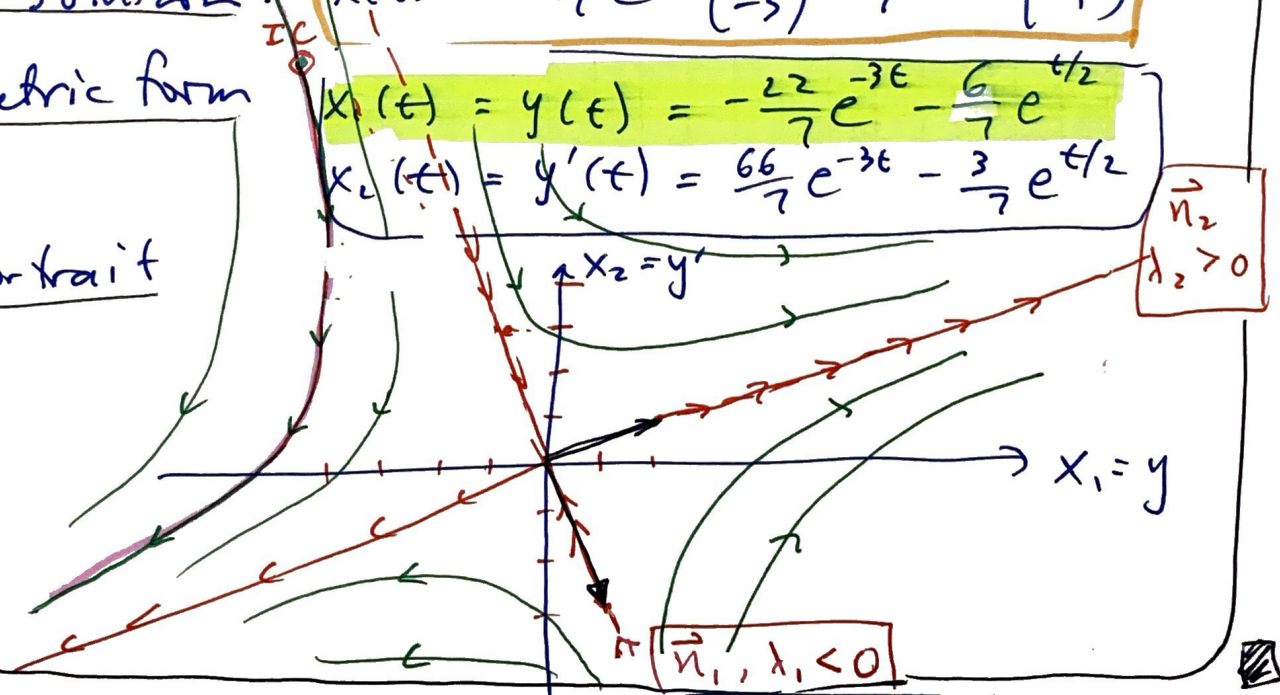 (-3)
IC
etric form
x₁(t) = y(t) = -22/7 e^{-3t} - 6/7 e^{t/2}
x₂(t) = y'(t) = 66/7 e^{-3t} - 3/7 e^{t/2}
rtrait
x₂ = y'
n⃗₂
λ₂ > 0
x₁ = y
n⃗₁, λ₁ < 0